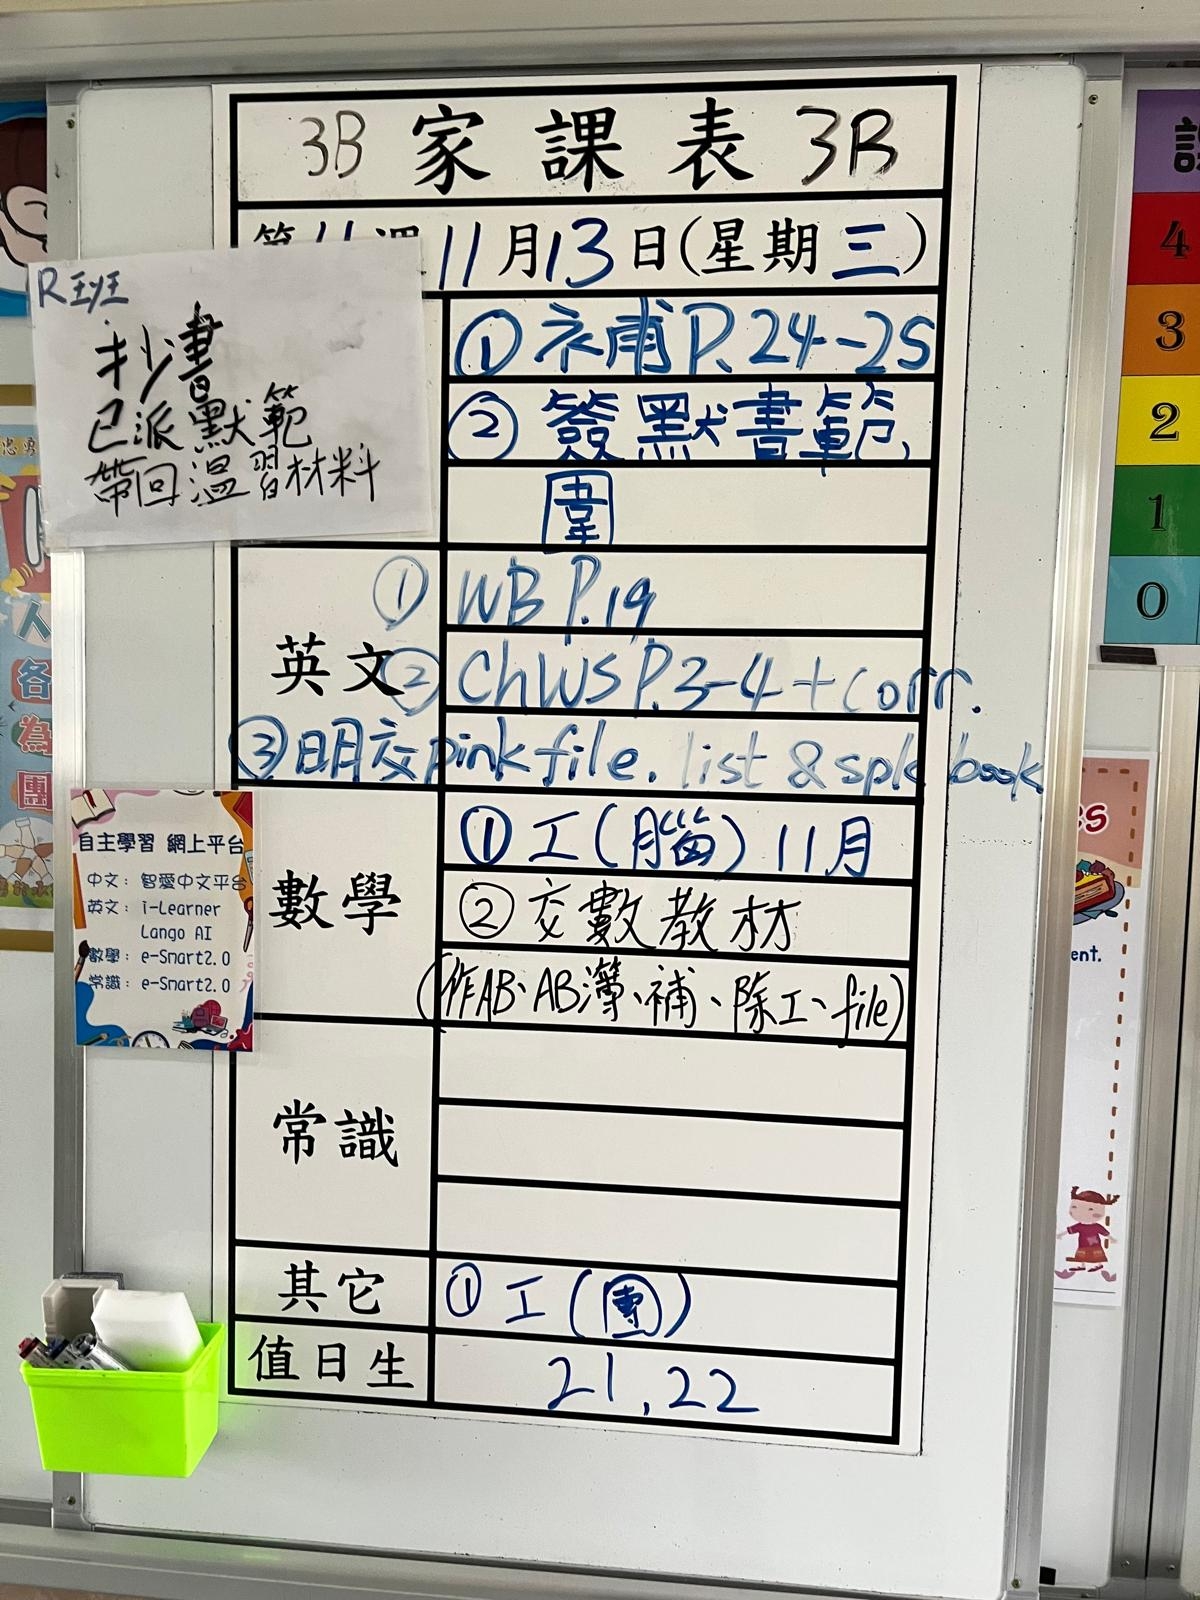 3B 家課表 3B
11月13日(星期三)
R
抄書
已派默範
帶回溫習材料
① 補 P.24-25
② 簽默書範
英文
① WB P.19
② ChWS P.3-4 + corr.
③ 明交 pink file, list & spk book
數學
① 工(腦) 11月
② 交數教材
(作AB、AB簿、補、除工、file)
自主學習 網上平台
中文： 智愛中文平台
英文： i-Learner
Lango AI
數學： e-Smart2.0
常識： e-Smart2.0
常識
其它
① 工(團)
值日生
21, 22
4
3
2
1
0
人各為團
ent.